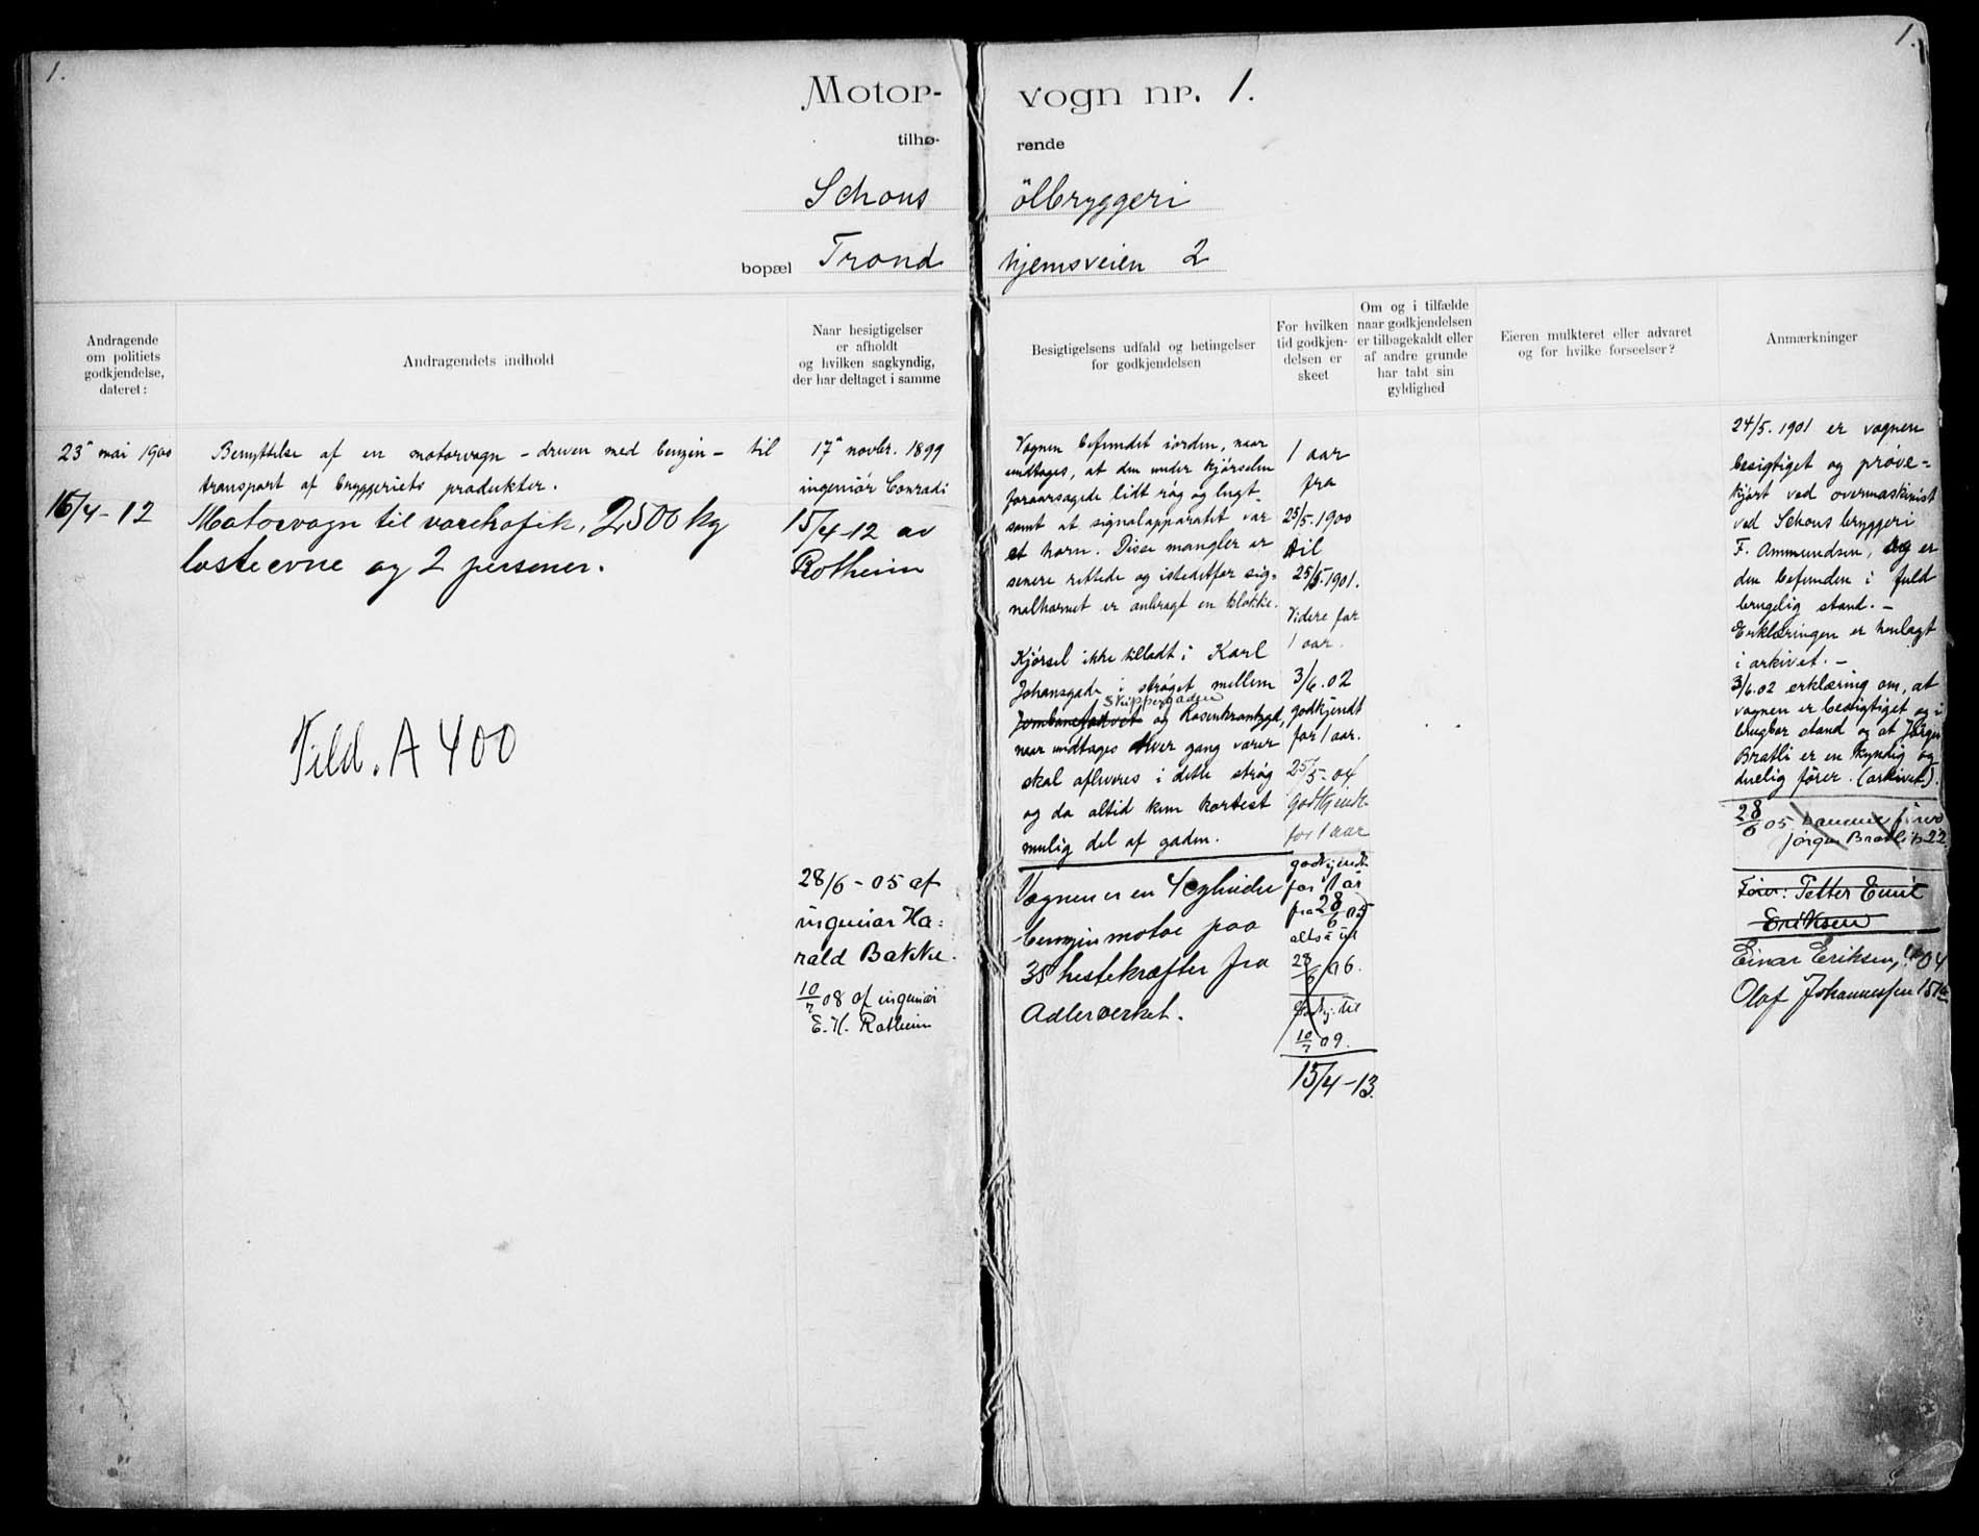 1.
1.
Motor-vogn nr. 1.
tilhørende
Schous ölbryggeri
bopæl Trondhjemsveien 2
Andragende
om politiets
godkjendelse,
dateret:
Andragendets indhold
Naar besigtigelser
er afholdt
og hvilken sagkyndig,
der har deltaget i samme
Besigtigelsens udfald og betingelser
for godkjendelsen
For hvilken
tid godkjen-
delsen er
skeet
Om og i tilfælde
naar godkjendelsen
er tilbagekaldt eller
af andre grunde
har tabt sin
gyldighed
Eieren mulkteret eller advaret
og for hvilke forseelser?
Anmærkninger
23de mai 1900
15/4-12
Benyttelse af en motorvogn - dreven med benzin - til
transport af bryggeriets produkter.
Motorvogn til varetrafik, 2500 kg
lasteevne og 2 personer.
Tild. A 400
17de novbr. 1899
ingeniör Conradi
15/4-12 av
Rotheim
28/6-05 af
ingeniør Ha=
rald Bakke.
10/7 08 af ingeniør
E. H. Rotheim
Vognen befundet iorden, naar
undtages, at den under kjörselen
foraarsagede lidt røg og lugt,
samt at signalapparatet var
et horn. Disse mangler er
senere rettede og istedetfor sig=
nalhornet er anbragt en klokke.
Kjörsel ikke tilladt i Karl
Johansgade i strøget mellem
Skippergaden
Jernbanetorvet og Rosenkrantzgd,
naar undtages hver gang varer
skal afleveres i dette strøg
og da altid kun kortest
mulig del af gaden.
Vognen er en 4 cylinder
benzinmotor paa
35 hestekræfter fra
Adlerværket.
1 aar
fra
25/5.1900
til
25/5.1901.
Videre for
1 aar.
3/6.02
godkjendt
for 1 aar.
25/5-04
Godkjendt
for 1 aar
godkjendt
for 1 år
fra 28/6 05
altså til
28/6 06.
Godkj. til
10/7 09.
15/4-13.
24/5.1901 er vognen
besigtiget og prøve=
kjørt ved overmaskinist
ved Schous bryggeri
F. Ammundsen, og er
den befunden i fuld
brugelig stand. -
Erklæringen er henlagt
i arkivet. -
3/6.02 erklæring om, at
vognen er besigtiget og i
brugbar stand og at Jörgen
Bratli er en kyndig og
duelig förer. (arkivet).
28/6 05 fører
Jørgen Bratli 22
Fører: Petter Emil
Eriksen
Einar Eriksen, 04
Olaf Johannessen